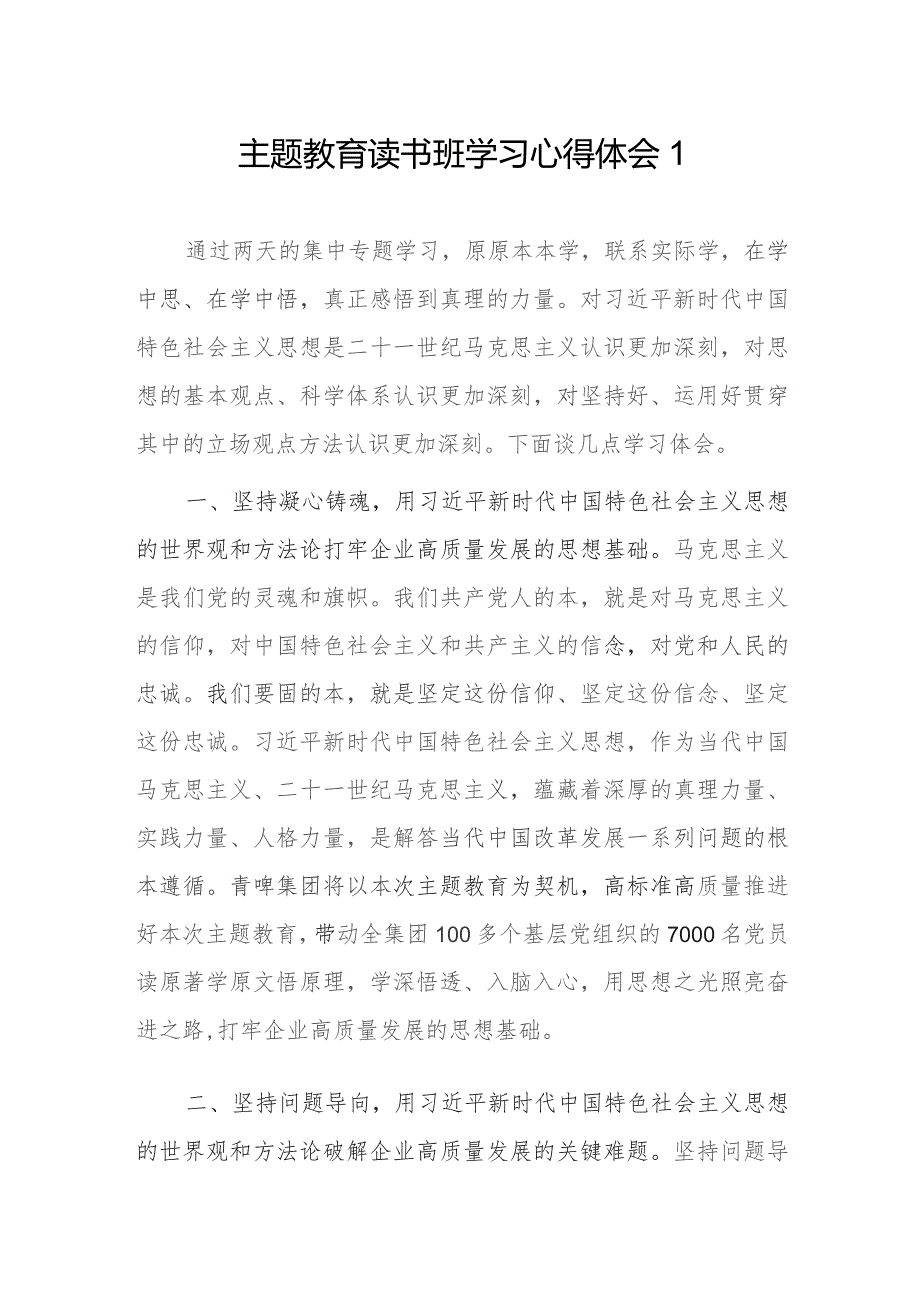 主题教育读书班学习心得体会 1
通过两天的集中专题学习，原原本本学，联系实际学，在学
中思、在学中悟，真正感悟到真理的力量。对习近平新时代中国
特色社会主义思想是二十一世纪马克思主义认识更加深刻，对思
想的基本观点、科学体系认识更加深刻，对坚持好、运用好贯穿
其中的立场观点方法认识更加深刻。下面谈几点学习体会。
一、坚持凝心铸魂，用习近平新时代中国特色社会主义思想
的世界观和方法论打牢企业高质量发展的思想基础。马克思主义
是我们党的灵魂和旗帜。我们共产党人的本，就是对马克思主义
的信仰，对中国特色社会主义和共产主义的信念，对党和人民的
忠诚。我们要固的本，就是坚定这份信仰、坚定这份信念、坚定
这份忠诚。习近平新时代中国特色社会主义思想，作为当代中国
马克思主义、二十一世纪马克思主义，蕴藏着深厚的真理力量、
实践力量、人格力量，是解答当代中国改革发展一系列问题的根
本遵循。青啤集团将以本次主题教育为契机，高标准高质量推进
好本次主题教育，带动全集团 100 多个基层党组织的 7000 名党员
读原著学原文悟原理，学深悟透、入脑入心，用思想之光照亮奋
进之路,打牢企业高质量发展的思想基础。
二、坚持问题导向，用习近平新时代中国特色社会主义思想
的世界观和方法论破解企业高质量发展的关键难题。坚持问题导